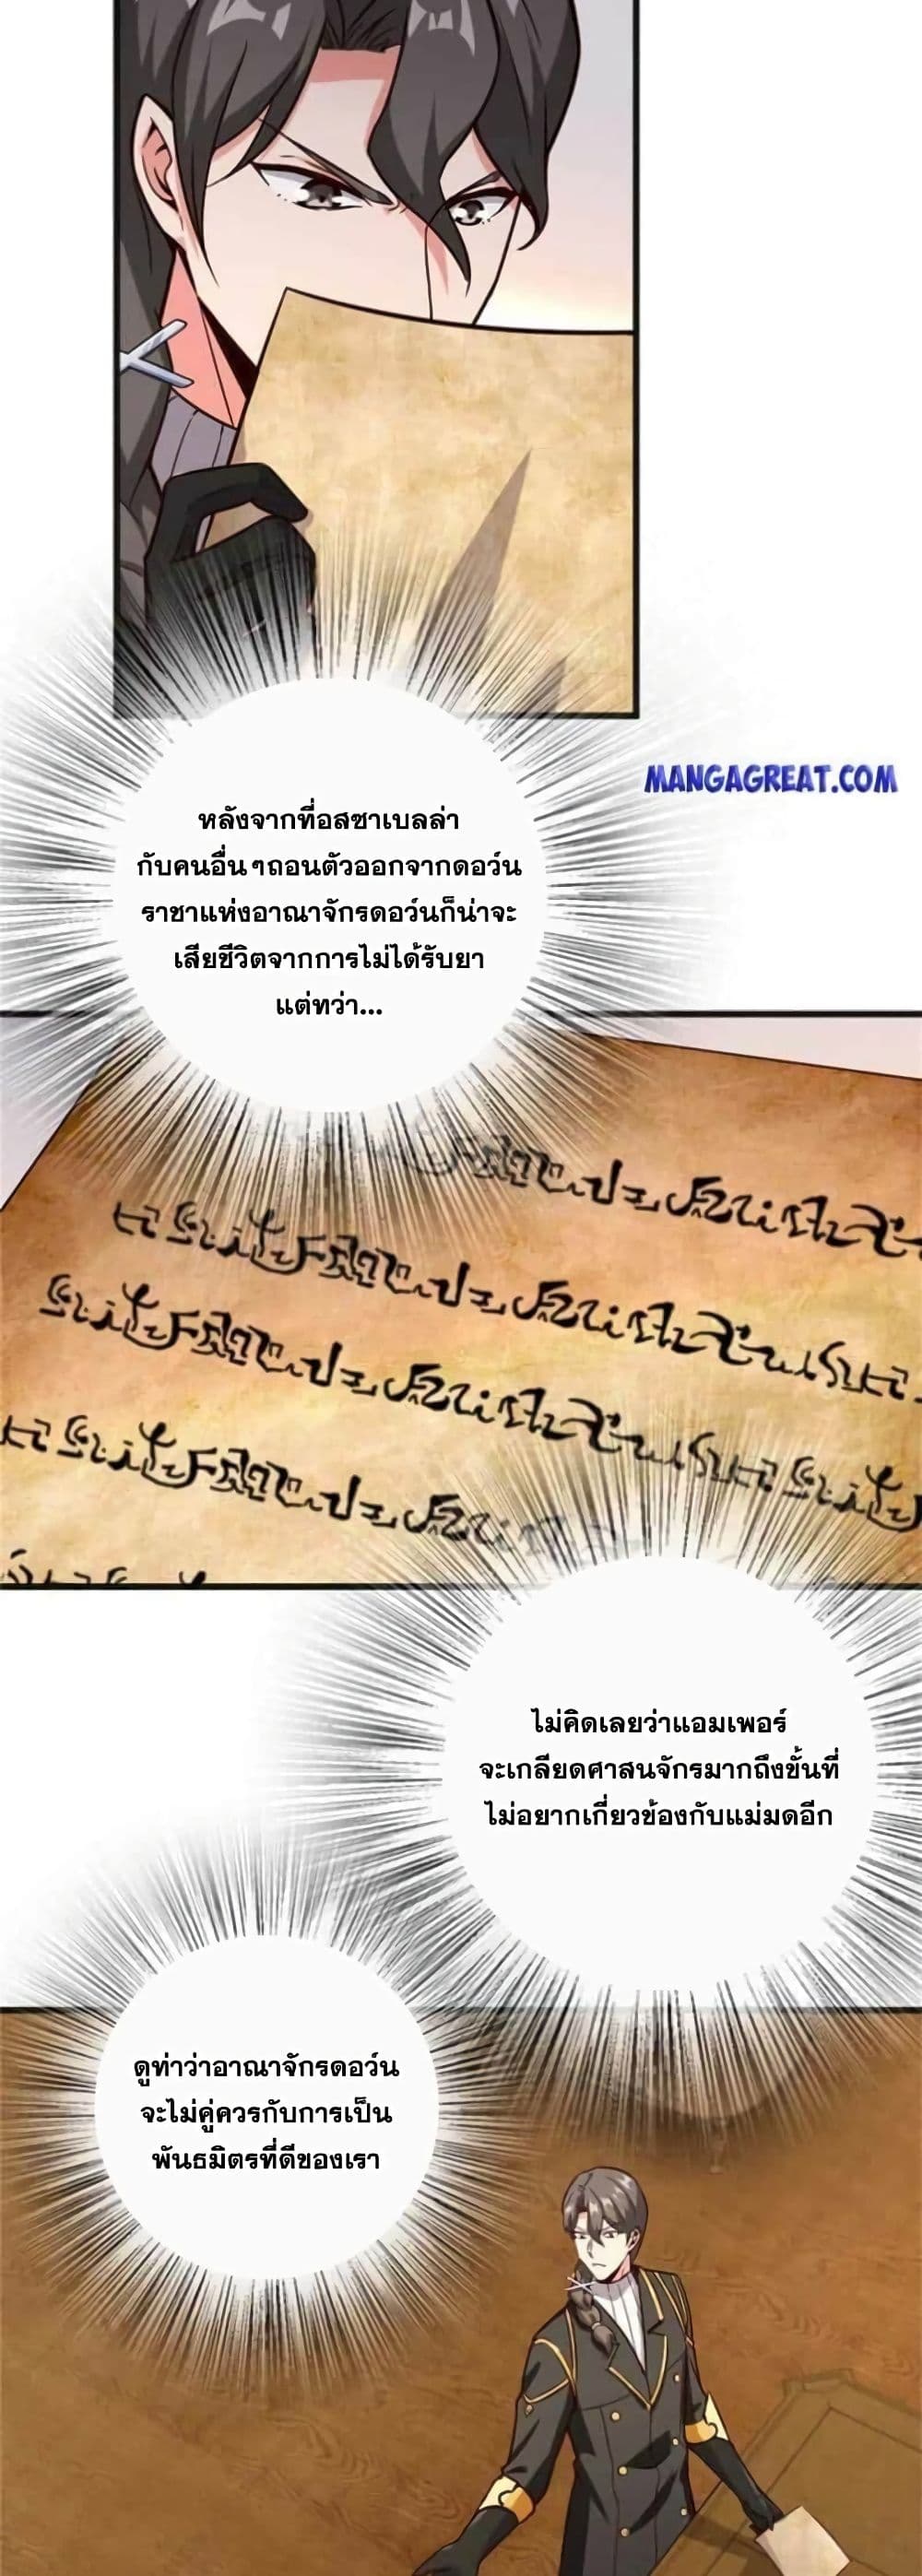 MANGAGREAT.COM
หลังจากที่อสซาเบลล่า
กับคนอื่นๆถอนตัวออกจากดอว์น
ราชาแห่งอาณาจักรดอว์นก็น่าจะ
เสียชีวิตจากการไม่ได้รับยา
แต่ทว่า...
ไม่คิดเลยว่าแอมเพอร์
จะเกลียดศาสนจักรมากถึงขั้นที่
ไม่อยากเกี่ยวข้องกับแม่มดอีก
ดูท่าว่าอาณาจักรดอว์น
จะไม่คู่ควรกับการเป็น
พันธมิตรที่ดีของเรา